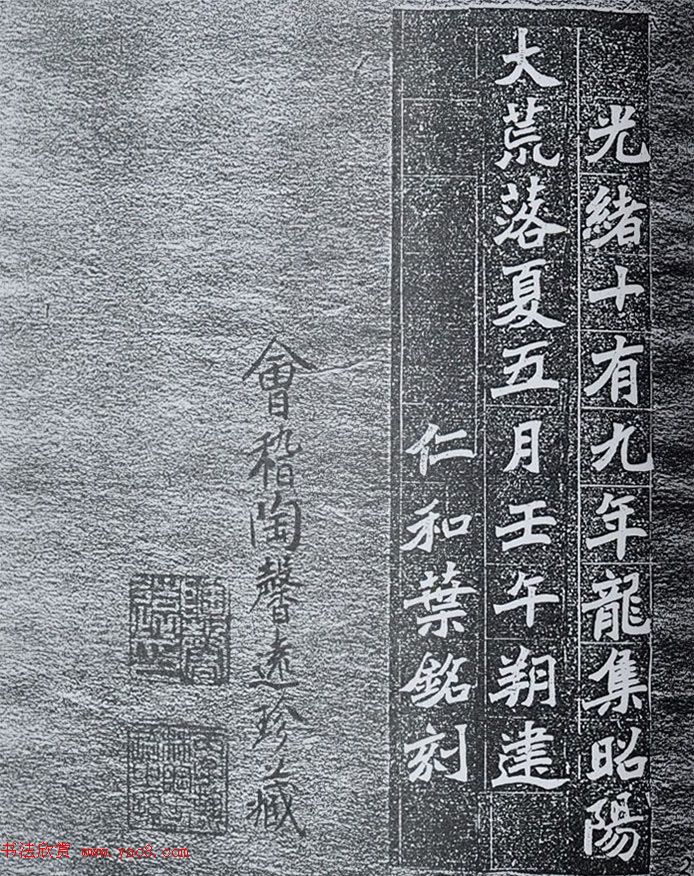 光緒十有九年龍集昭陽
大荒落夏五月壬午朔建
仁和葉銘刻
會稽陶馨遠珍藏
书法欣赏 www.yac8.com